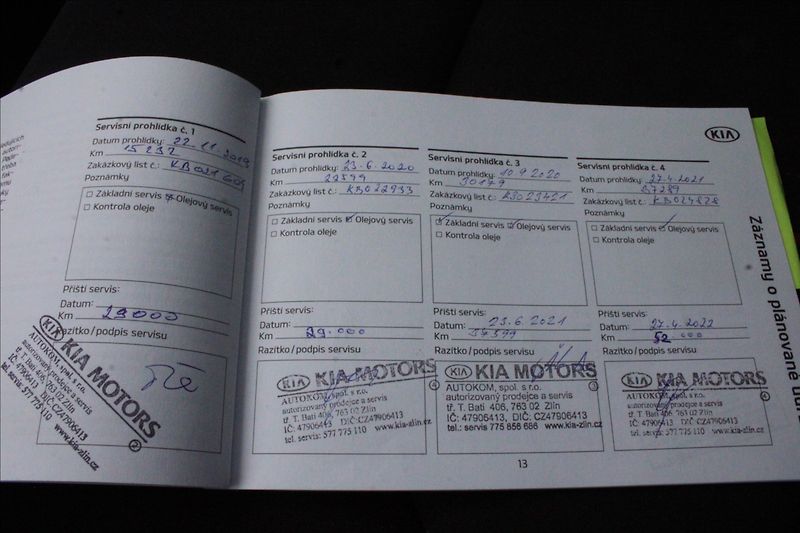 KIA
Záznamy o plánované
Servisní prohlídka č. 1
Datum prohlídky: 22.11.2019
Km 15 232
Zakázkový list č.: KB021
Poznámky
Základní servis Olejový servis
Kontrola oleje
Příští servis:
Datum:
Km 29000
Razítko/podpis servisu
KIA KIA MOTORS
AUTOKOM, spol. s r.o.
autorizovaný prodejce a servis
tř. T. Bati 406, 763 02 Zlín
IČ: 47906413, DIČ: CZ47906413
tel. servis: 577 775 110
www.kia-zlin.cz
2
Servisní prohlídka č. 2
Datum prohlídky: 23.6.2020
Km 22599
Zakázkový list č.: KB022933
Poznámky
Základní servis Olejový servis
Kontrola oleje
Příští servis:
Datum:
Km 29.000
Razítko/podpis servisu
KIA KIA MOTORS
AUTOKOM, spol. s r.o.
autorizovaný prodejce a servis
tř. T. Bati 406, 763 02 Zlín
IČ: 47906413, DIČ: CZ47906413
tel. servis: 577 775 110 www.kia-zlin.cz
Servisní prohlídka č. 3
Datum prohlídky: 10.9.2020
Km 30179
Zakázkový list č.: KB023421
Poznámky
Základní servis Olejový servis
Kontrola oleje
Příští servis:
Datum: 23.6.2021
Km 37599
Razítko/podpis servisu
KIA KIA MOTORS
AUTOKOM, spol. s r.o.
autorizovaný prodejce a servis
tř. T. Bati 406, 763 02 Zlín
IČ: 47906413, DIČ: CZ47906413
tel.: servis 775 856 686 www.kia-zlin.cz
3
Servisní prohlídka č. 4
Datum prohlídky: 27.4.2021
Km 37289
Zakázkový list č.: KB024828
Poznámky
Základní servis Olejový servis
Kontrola oleje
Příští servis:
Datum: 27.4.2022
Km 52 000
Razítko/podpis servisu
KIA KIA MOTORS
AUTOKOM, spol. s r.o.
autorizovaný prodejce a servis
tř. T. Bati 406, 763 02 Zlín
IČ: 47906413, DIČ: CZ47906413
tel. servis: 577 775 110 www.kia-zlin.cz
13